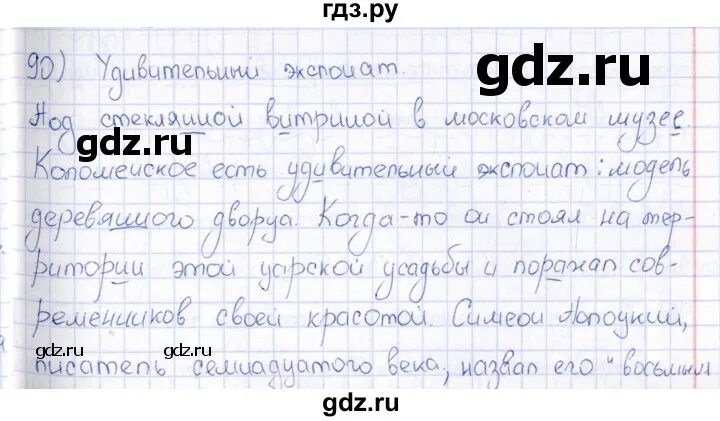 гдз.ру
gdz.ru
90) Удивительный экспонат.
gdz.ru
Под стеклянной витриной в московском музее
gdz.ru
Коломенское есть удивительный экспонат: модель
деревянного дворца. Когда-то он стоял на тер-
ритории этой царской усадьбы и поражал сов-
ременников своей красотой. Симеон Полоцкий,
gdz.ru gdz.ru gdz.ru
писатель семнадцатого века, назвал его "восьмым
gdz.ru